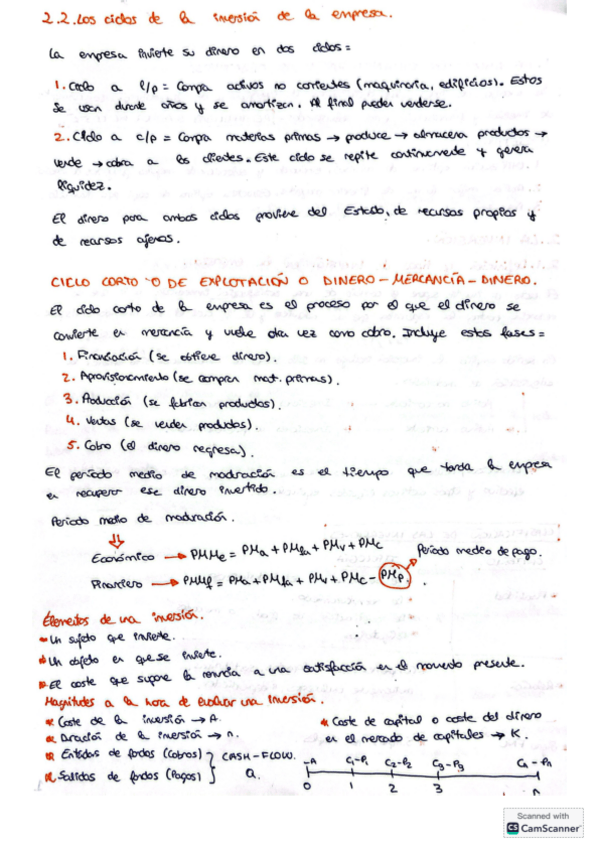 2.2. Los ciclos de la inversión de la empresa.
La empresa invierte su dinero en dos ciclos =
1. Ciclo a l/p = Compra activos no corrientes (maquinaria, edificios). Estos
se usan durante años y se amortizan. Al final pueden venderse.
2. Ciclo a c/p = Compra materias primas → produce → almacena productos →
vende → cobra a los clientes. Este ciclo se repite continuamente y genera
liquidez.
El dinero para ambos ciclos proviene del Estado, de recursos propios y
de recursos ajenos.
CICLO CORTO O DE EXPLOTACIÓN O DINERO - MERCANCÍA - DINERO.
El ciclo corto de la empresa es el proceso por el que el dinero se
convierte en mercancía y vuelve otra vez como cobro. Incluye estas fases =
1. Financiación (se obtiene dinero).
2. Aprovisionamiento (se compran mat. primas).
3. Producción (se fabrican productos).
4. Ventas (se venden productos).
5. Cobro (el dinero regresa).
El período medio de maduración es el tiempo que tarda la empresa
en recuperar ese dinero invertido.
Período medio de maduración.
Económico → PMMe = PMa + PMfa + PMv + PMc
Período medio de pago.
Financiero → PMMf = PMa + PMfa + PMv + PMc - PMp.
Elementos de una inversión.
Un sujeto que invierte.
Un objeto en que se invierte.
El coste que supone la renuncia a una satisfacción en el momento presente.
Magnitudes a la hora de evaluar una inversión.
Coste de la inversión → A.
Duración de la inversión → n.
Entidas de fondos (Cobros)
Salidas de fondos (Pagos)
} CASH-FLOW.
a.
Coste de capital o coste del dinero
en el mercado de capitales → K.
-A C1-P1 C2-P2 C3-P3 Cn-Pn
0 1 2 3 n
Scanned with
CS CamScanner